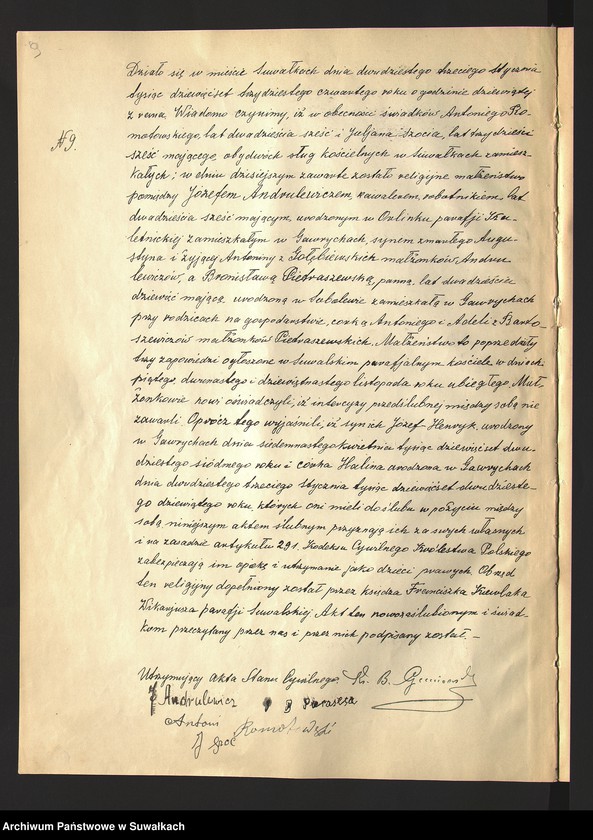 Nr 9.
Działo się w mieście Suwałkach dnia dwudziestego trzeciego stycznia
tysiąc dziewięćset trzydziestego czwartego roku o godzinie dziewiątej
z rana. Wiadomo czynimy, iż w obecności świadków Antoniego Ro-
motowskiego, lat dwadzieścia sześć i Juljana Szocia, lat trzydzieści
sześć mającego, obydwóch sług kościelnych w Suwałkach zamiesz-
kałych; w dniu dzisiejszym zawarte zostało religijne małżeństwo
pomiędzy Józefem Andrulewiczem, kawalerem, robotnikiem, lat
dwadzieścia sześć mającym, urodzonym w parafji Ku-
letnickiej zamieszkałym w Gawrychach, synem zmarłego Augu-
styna i żyjącej Antoniny z Gołębiewskich małżonków Andru-
lewiczów, a Bronisławą Pietraszewską, panną, lat dwadzieścia
dziewięć mającą, urodzoną w Sobolewie zamieszkałą w Gawrychach
przy rodzicach na gospodarstwie, córką Antoniego i Adeli z Barto-
szewiczów małżonków Pietraszewskich. Małżeństwo to poprzedziły
trzy zapowiedzi ogłoszone w Suwalskim parafjalnym kościele w dniach
piątego, dwunastego i dziewiętnastego listopada roku ubiegłego. Mał-
żonkowie nowi oświadczyli, iż intercyzy przedślubnej między sobą nie
zawarli. Oprócz tego wyjaśnili, iż syn ich Józef-Henryk, urodzony
w Gawrychach dnia siedemnastego kwietnia tysiąc dziewięćset dwu-
dziestego siódmego roku i córka Halina urodzona w Gawrychach
dnia dwudziestego trzeciego stycznia tysiąc dziewięćset dwudzieste-
go dziewiątego roku, których oni mieli do ślubu w pożyciu między
sobą, niniejszym aktem ślubnym przyznają ich za swych własnych
i na zasadzie artykułu 291. Kodeksu Cywilnego Królestwa Polskiego
zabezpieczają im opiekę i utrzymanie jako dzieci prawych. Obrzęd
ten religijny dopełniony został przez księdza Franciszka Kiewlaka
Wikarjusza parafji Suwalskiej. Akt ten nowozaślubionym i świad-
kom przeczytany przez nas i przez nich podpisany został. –
Utrzymujący akta Stanu Cywilnego: Ks. B.
J Andrulewicz B
Antoni Romotowski
J Szoć
Archiwum Państwowe w Suwałkach